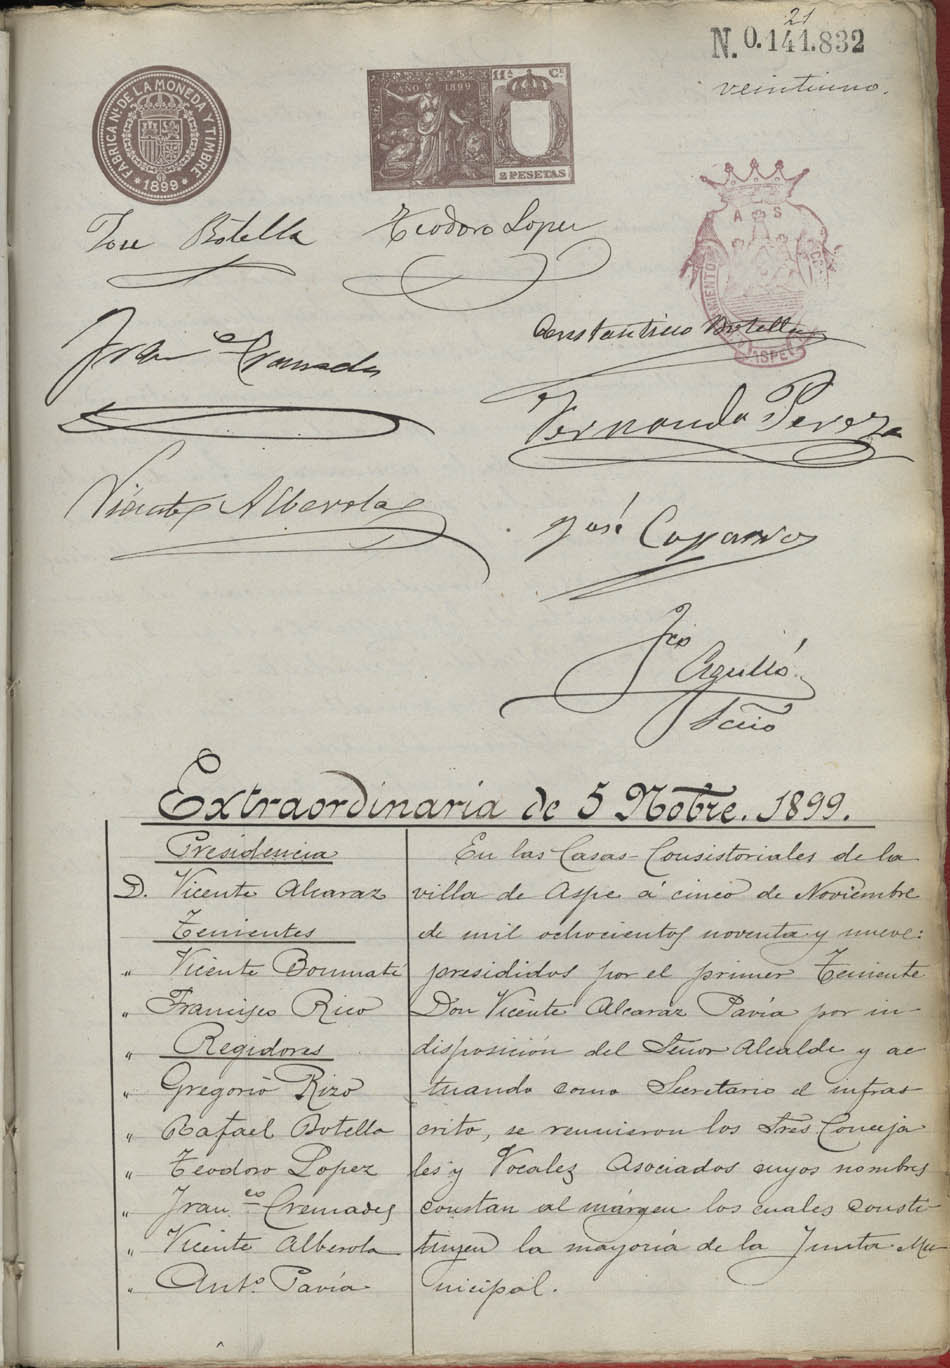 21
N. 0.141.832
veintiuno.
FABRICA NL. DE LA MONEDA Y TIMBRE
* 1899 *
11ª Cl.
AÑO 1899
2 PESETAS
A S
ASPE
Jose Botella
Teodoro Lopez
Franco Cremades
Constantino Botella
Fernando Perez
Vicente Alberola
José Caparros
Fco Agulló
Scrio
Extraordinaria de 5 Nobre. 1899.
Presidencia
D. Vicente Alcaraz
Tenientes
" Vicente Bonmati
" Francisco Rico
" Regidores
" Gregorio Rizo
" Rafael Botella
" Teodoro Lopez
" Franco Cremades
" Vicente Alberola
" Anto. Pavía
En las Casas-Consistoriales de la
villa de Aspe á cinco de Noviembre
de mil ochocientos noventa y nueve:
presididos por el primer Teniente
Don Vicente Alcaraz Pavía por in-
disposición del Señor Alcalde y ac
tuando como Secretario el infras-
crito, se reunieron los Sres Conceja
les y Vocales Asociados cuyos nombres
constan al márgen los cuales consti-
tuyen la mayoría de la Junta Mu-
nicipal.